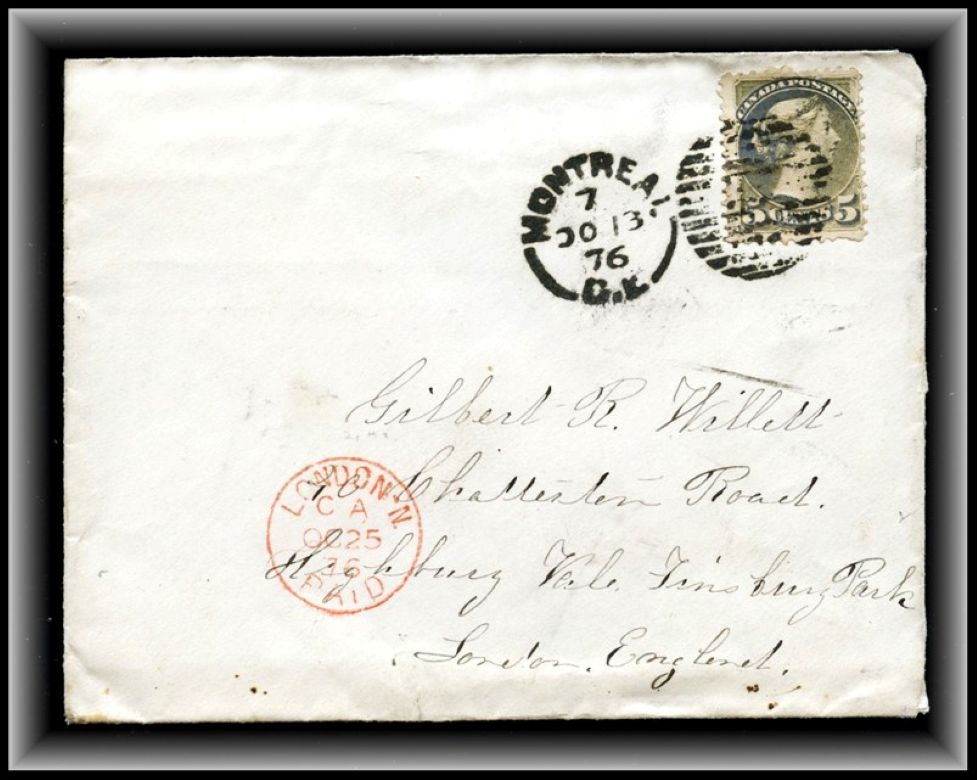 CANADA POSTAGE
5 CENTS 5
MONTREAL
7
OC 13
76
C.E.
Gilbert R. Willett
70 Chatterton Road.
Highbury Vale Finsbury Park
London. England.
LONDON·N.
C A
OC 25
76
PAID